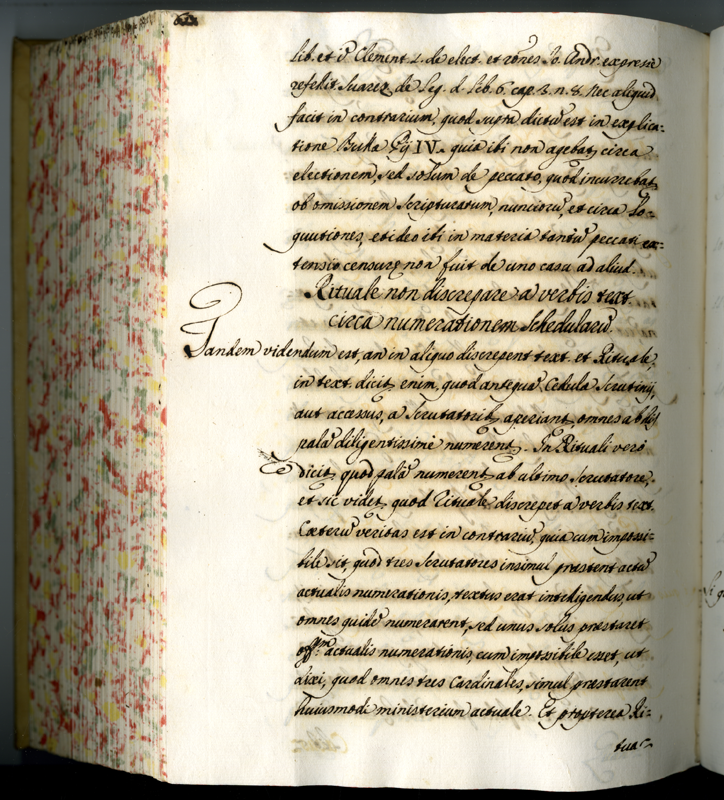 lib. et i͠ Clement 2. de elect. et ro͠nes Jo. Andr. expresse
refellit Suarez de Leg. d. lib. 6. cap. 3. n. 8. Nec aliquid
facit in contrarium, quod supra dictu͠ est in explica=
tione Bullæ Pij IV. quia ibi non agebat, circa
electionem, sed solum de peccato, quod incurrebat,
ob omissionem Scripturarum, nuncioru͠, et circa Lo=
quutiones, et ideo ibi in materia tantu͠ peccati ex=
tensio censuræ non fuit de uno casu ad aliud.
Rituale non discrepare a verbis text.
circa numerationem Schedularu͠.
Tandem videndum est, an in aliquo discrepent text. et Rituale,
in text. dicit, enim, quod antequa͠ Cedula Scrutinij,
aut accessus, a Scrutatorib, aperiant, omnes ab
pala͠ diligentissimè numerent. In Rituali verò
dicit, quod pala͠ numerent, ab ultimo Scrutatore,
et sic videt, quod Rituale discrepet a verbis text.
Cæteru͠ veritas est in contrariu͠, quia cum impossi=
bile sit, quod tres Scrutatores insimul præstent actu͠
actualis numerationis, textus erat intelligendus, ut
omnes quide͠ numerarent, sed unus solus præstaret
off.m actualis numerationis, cum impossibile esset, ut
dixi, quod omnes tres Cardinales, simul præstarent
huiusmodi ministerium actuale. Et propterea Ri=
tua=